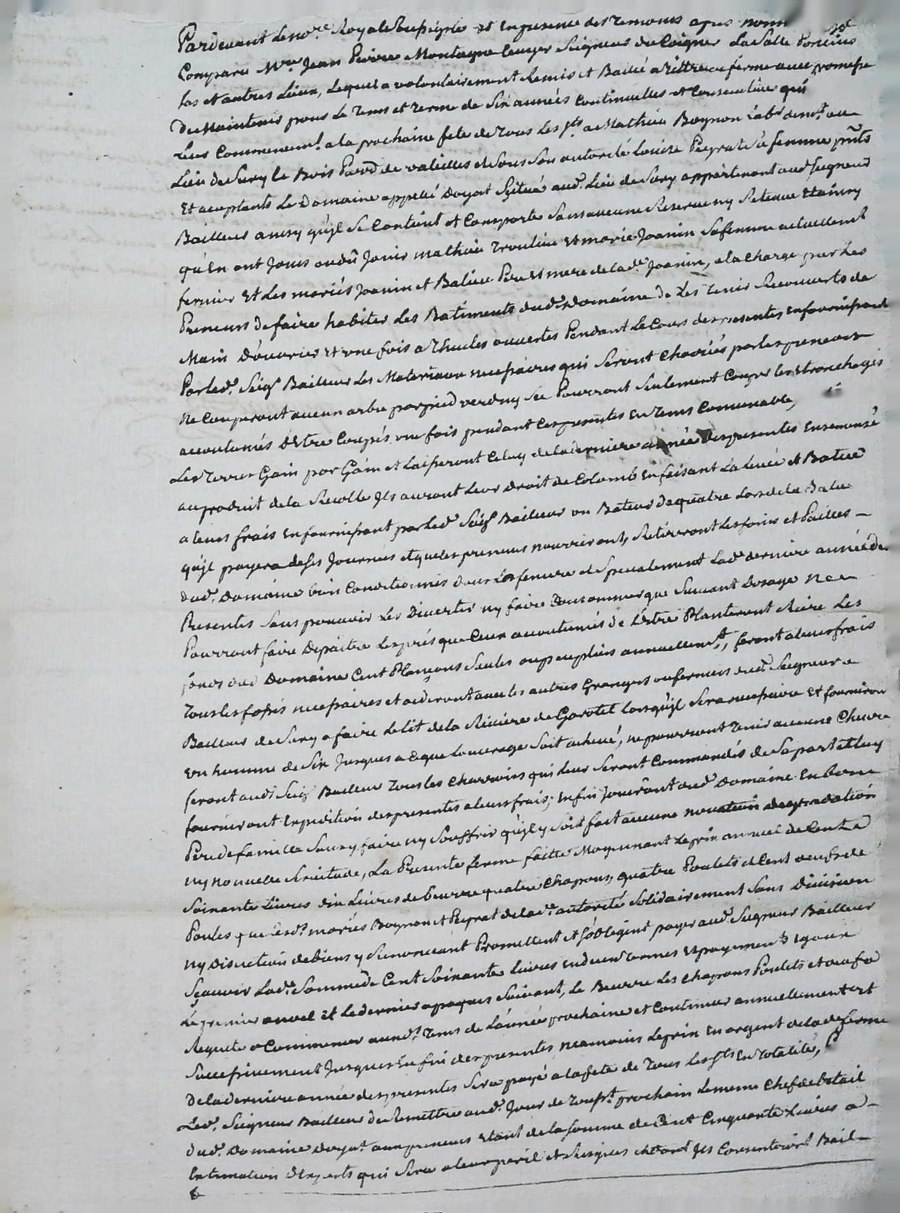 Pardevant le no.re Royal Soussigné et En presence des Temoins apres nom
Compara M.re Jean Pierre Montagne Seigneur du Coigner La Salle Poncins
Las et autres Lieux, Lequel a volontairement Remis et Baillé a Tittre de ferme avec promesse
De Maintenir pour Le Tems et Terme de Six années Continuelles et Consecutives qui
Leur Commencem.t a la prochaine fete de Tous les S.ts a Mathieu Boynon Lab.r dem.t au
Lieu de Sury le Bois Par.d de valeilles et Sous Son autorité Louise Peyrat Sa femme pnts
Et acceptants Le Domaine appellé Doyat Scitué aud. Lieu de Sury appartenant aud. Seigneur
Bailleur ainsy qu'il Se Contient et Comporte Sans aucune Reserve ny Retenue Et ainsy
qu'En ont Jouis ou dû Jouir mathieu Troulieu Et marie Joanin Sa femme actuellem.t
fermier Et Les mariés Joanin et Balieu Pere Et mere de lad. Joanin, a la Charge par Les
Preneurs de faire habiter Les Batiments dud. Domaine de Les Tenir Recouverts de
Main D'ouvrier Et une fois a Thuiles ouvertes Pendant Le Cours des presentes En fournissant
Par led. Seig.r Bailleur Les Materiaux necessaires qui Seront Charriés par les preneurs
Ne Couperont aucun arbre par pied verd ny Sec Pourront Seulement Couper les Etronchages
accoutumés D'Etre Coupés une fois pendant Ces presentes En Tems Convenable,
Les Terres Gain par Gain et Laisseront Celuy de la derniere année Des presentes Ensemencé
au produit de la Recolte Ils auront Leur Droit de Colomb En faisant La Levée et Batue
a leurs frais En fournissant par Led. Seig.r Bailleur un Bateur De quatre Lors de la Batue
qu'il payera de Ses Journees et que les preneurs nourriront, Retireront Les foins et Pailles
dud. Domaine bien Conditionnés dans Les feniere et Specialement Lad. derniere année Des
Presentes Sans pouvoir Les Divertir ny faire Consommer que Suivant L'usage Ne
Pourront faire Depaitre Les prés que Ceux accoutumés de L'être Planteront Riere Les
fonds dud. Domaine Cent Plançons Saules ou peupliers annuellem.t, feront a leurs frais
Tous les fossés necessaires et aideront avec les autres Grangers ou fermiers dud. Seigneur
Bailleur de Sury a faire Le Lit de la Riviere de Garolet Lorsqu'il Sera necessaire Et fourniront
Un homme de Six Jusques a ce que Louvrage Soit achevé, ne pourront Tenir aucune Chevre
feront aud. Seig.r Bailleur Tous les Charrois qui Leur Seront Commandés de Sa part Et luy
fourniront Expedition des presentes a leurs frais; Enfin Jouiront dud. Domaine En bons
Pere de famille Sans y faire ny Souffrir qu'il y Soit fait aucune degradation
Ny Nouvelle Servitude, La Presente ferme faite Moyennant Le prix annuel de Cent
Soixante Livres dix Livres de beurre quatre Chapons, quatre Poulets et Cent oeufs de
Poules que lesd. mariés Boynon et Peyrat de lad. autorité Solidairement Sans Division
Ny Discution de biens y Renonceant Promettent et S'obligent payer aud. Seigneur Bailleur
Sçavoir Lad. Somme de Cent Soixante Livres En deux Termes Et payements Egaux
Le premier a noel et Le dernier a paques Suivant, Le Beurre Les Chapons Poulets et oeufs a
Requete a Commencer aux d. Tems de L'année prochaine et Continuer annuellement et
Successivement Jusques En fin des presentes neamoins Le prix En argent de lad. ferme
De la derniere année des presentes Sera payé a la fete de Tous Les S.ts En Totalité,
Led. Seigneur Bailleur De Remettre aud. Jour de Touss.t prochain Le meme Chef de betail
dud. Domaine Doyat aux preneurs Etant de la Somme de Cent Cinquante Livres a
Estimation D'Experts qui Sera a leur peril et Risques Ils Consentoient Bail